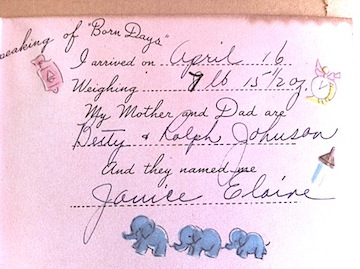 Speaking of "Born Days"
I arrived on April 16
Weighing 7 lb 15 1/2 oz.
My Mother and Dad are
Betty & Ralph Johnson
And they named me
Janice Elaine